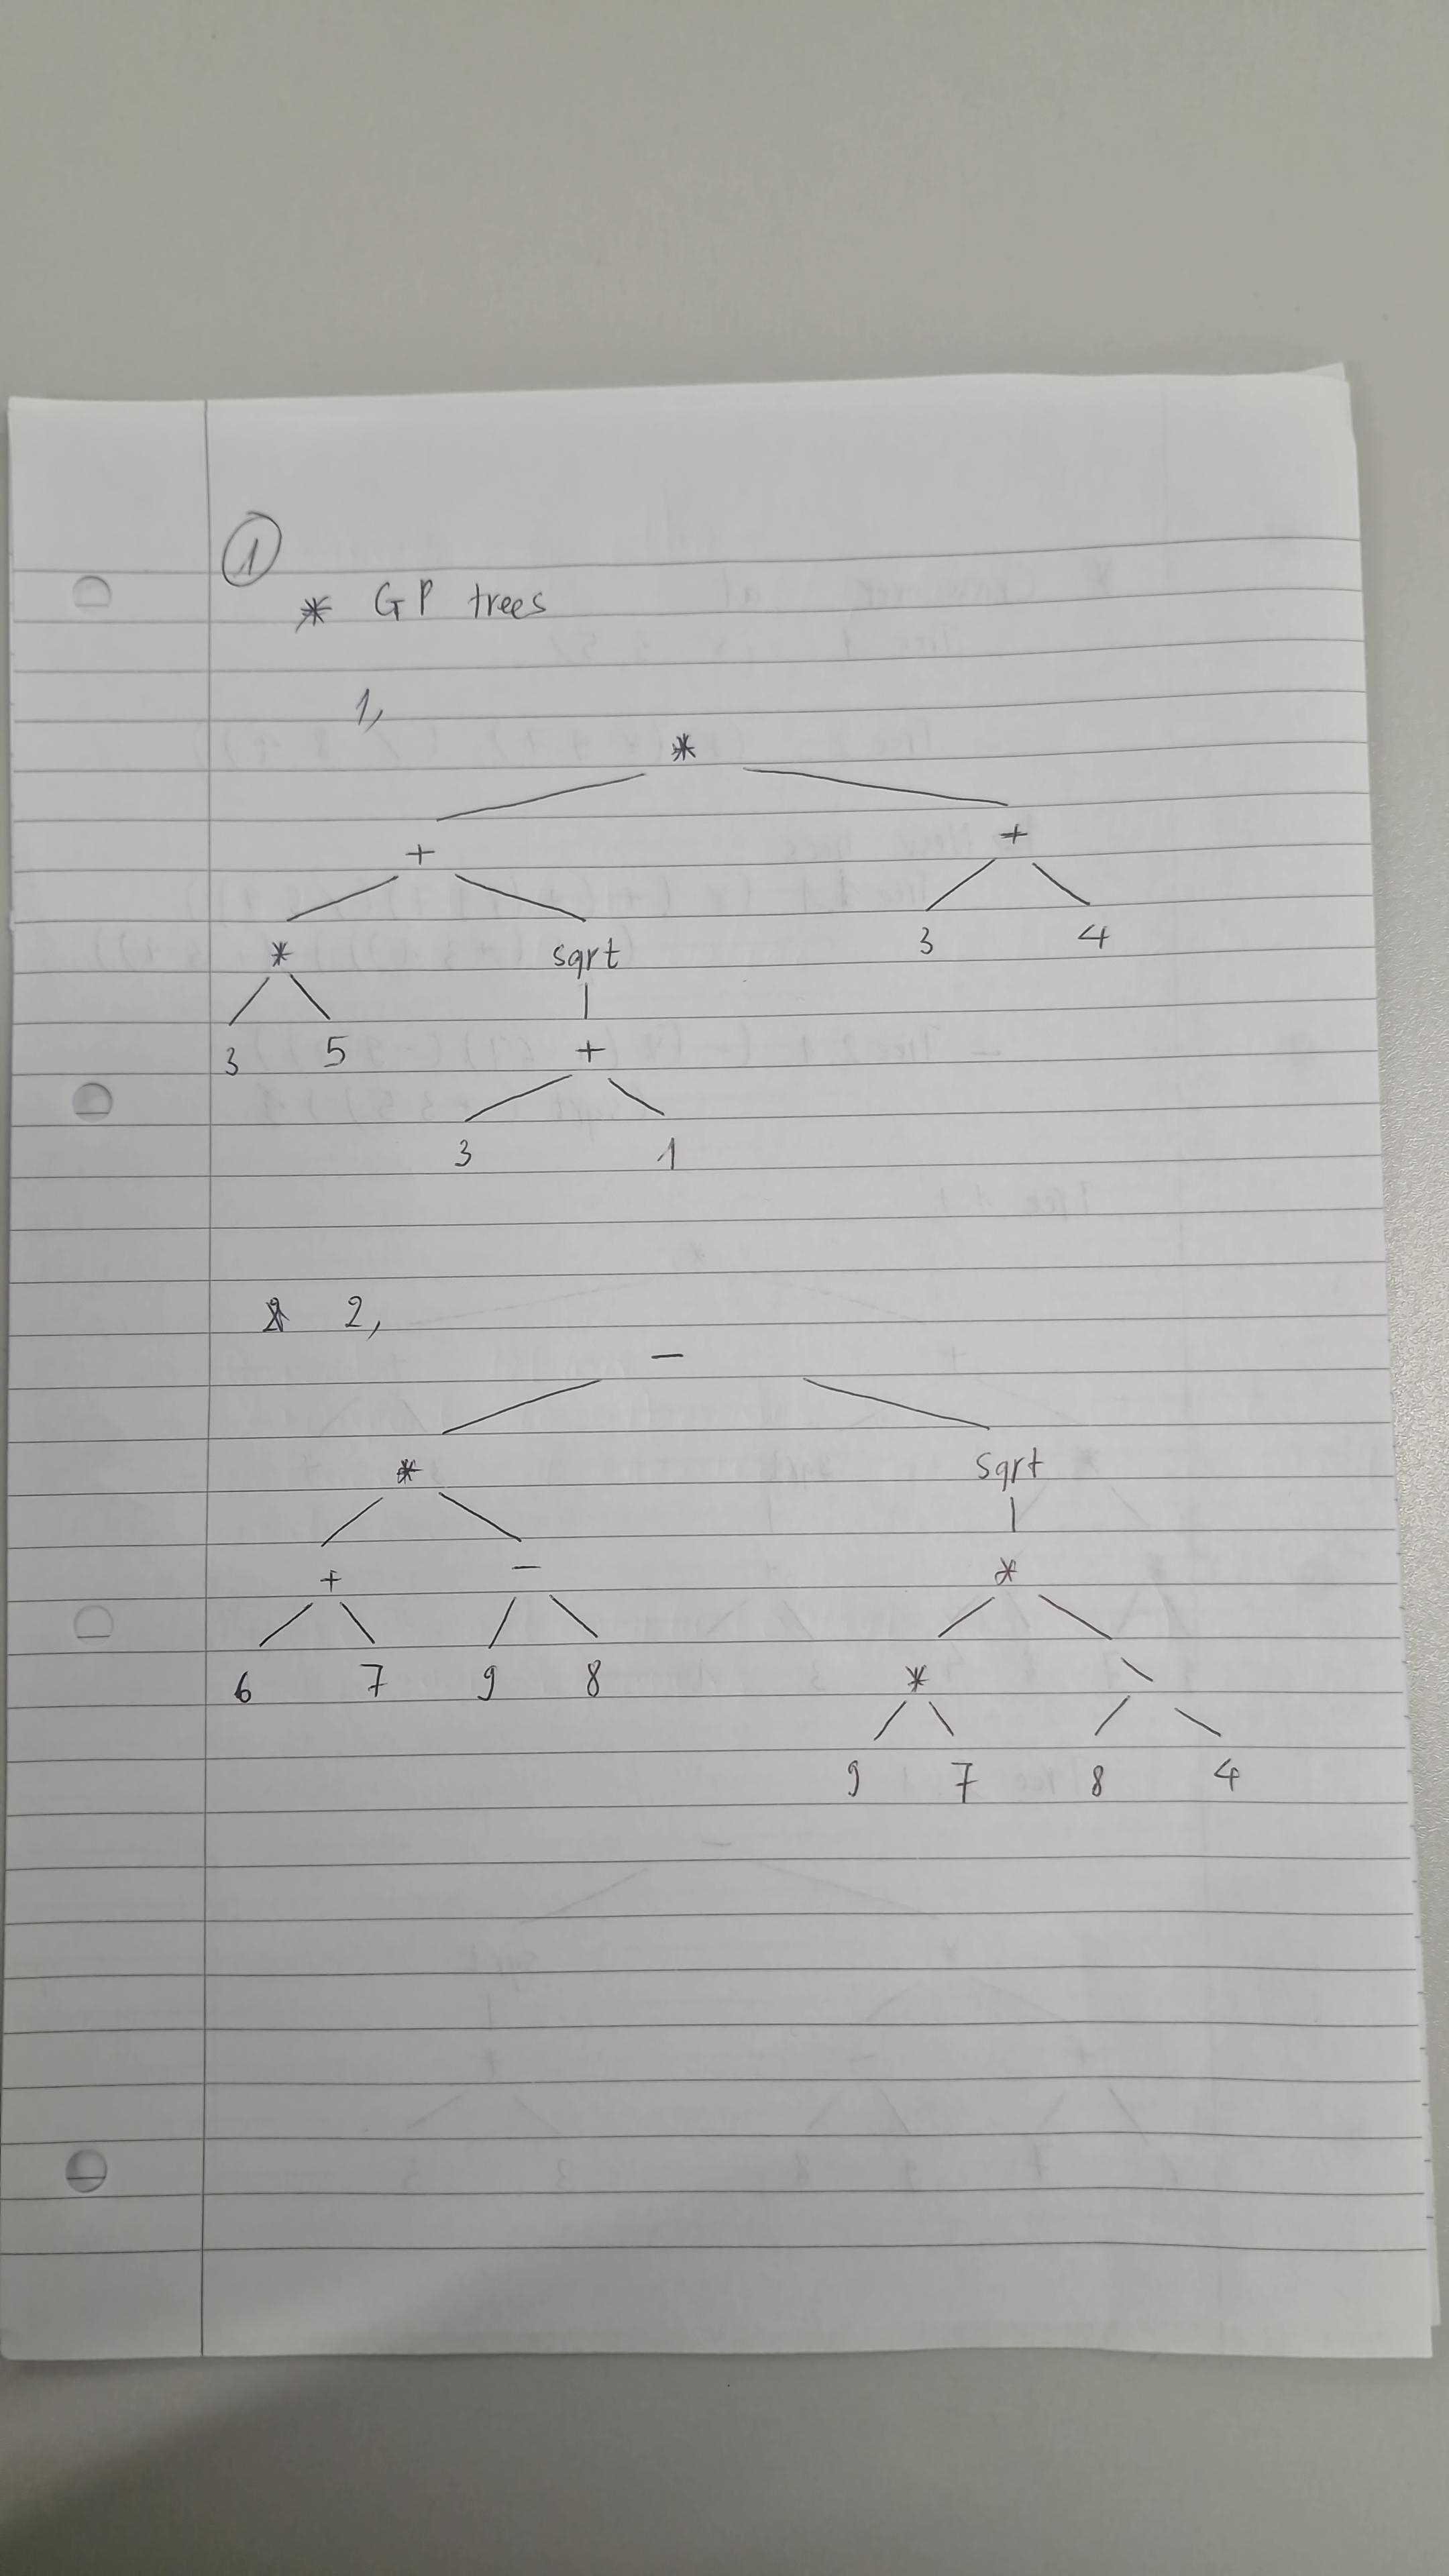 1
* GP trees
1,
*
+ +
* sqrt 3 4
3 5 +
3 1
2,
-
* sqrt
+ - *
6 7 9 8 * \
9 7 8 4